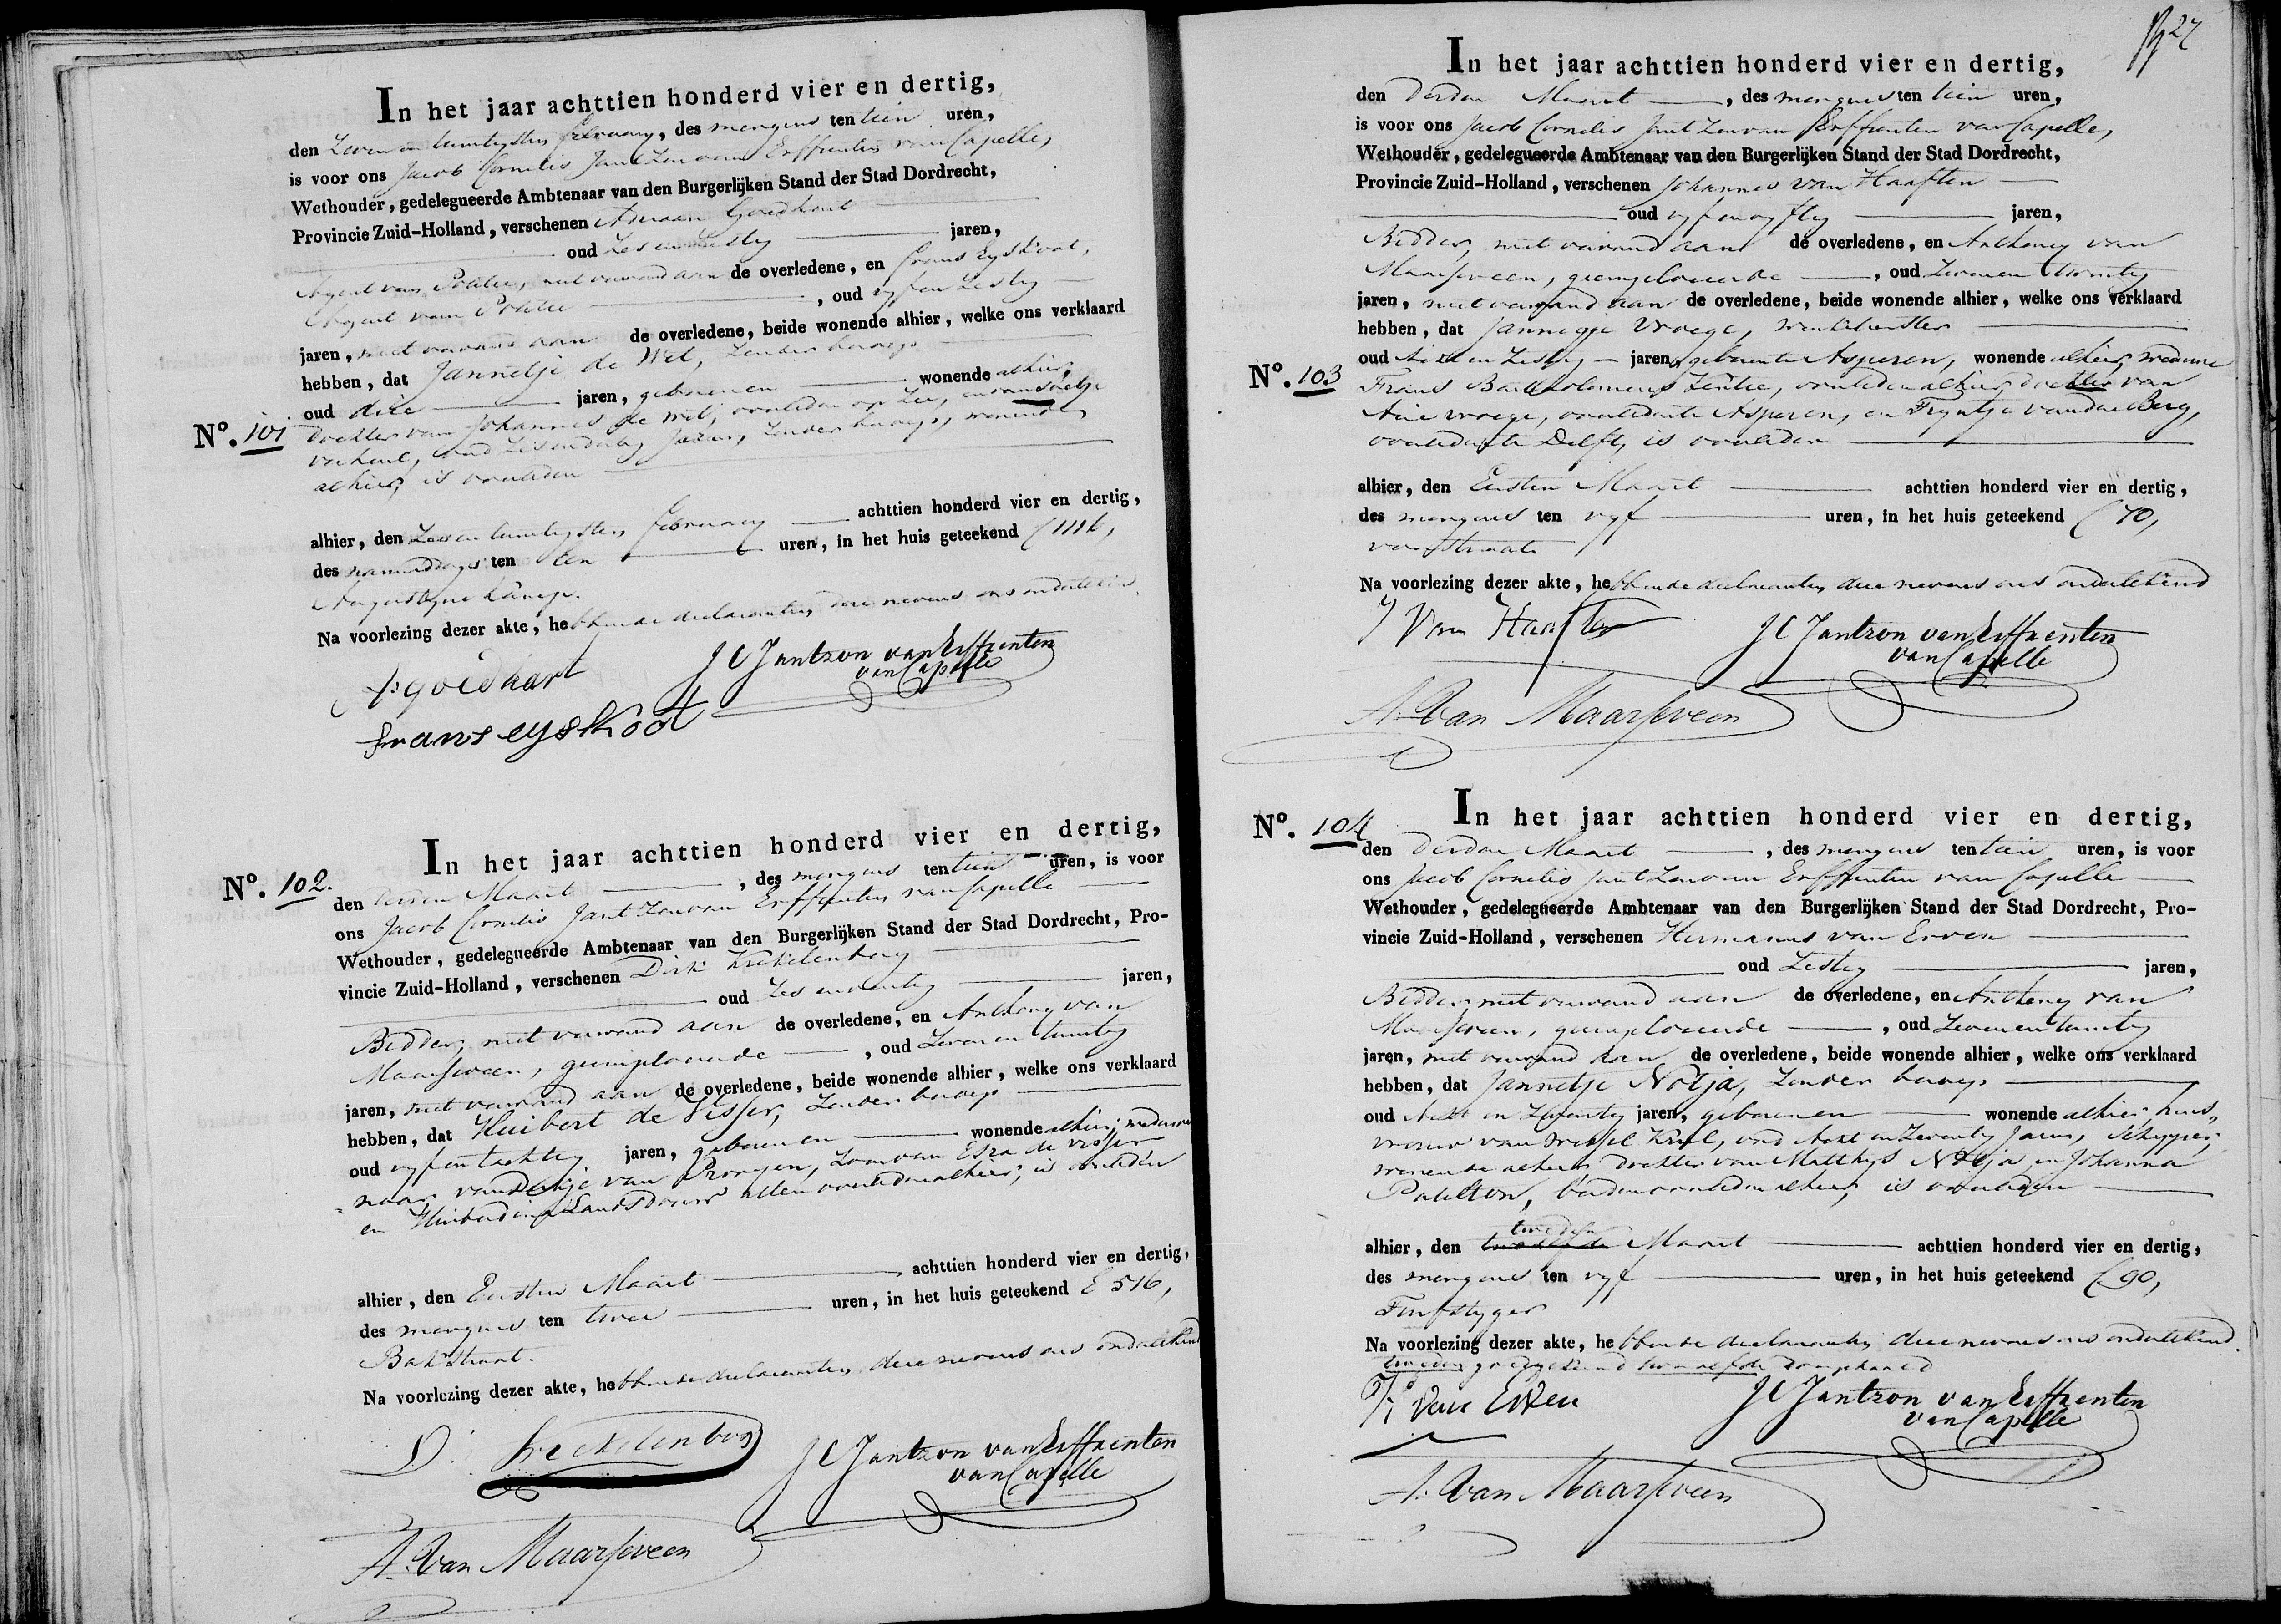 In het jaar achttien honderd vier en dertig,
den Zeven en twintigsten february, des morgens ten tien uren,
is voor ons Jacob Cornelis Jantzon van Erffrenten van Capelle,
Wethouder, gedelegueerde Ambtenaar van den Burgerlijken Stand der Stad Dordrecht,
Provincie Zuid-Holland, verschenen Adriaan Goedhart
oud Zes en Zestig jaren,
Agent van Politie, niet verwand aan de overledene, en frans Eyskoot,
Agent van Politie, oud vyf en Zestig
jaren, niet verwand aan de overledene, beide wonende alhier, welke ons verklaard
hebben, dat Jannetje de Wit, Zonder beroep
oud drie jaren, geboren en wonende alhier,
No. 101 dochter van Johannes de Wit, overleden op Zee, en van
oud Zes en dertig jaren, Zonder beroep, wonende
alhier, is overleden
alhier, den Zes en twintigsten february achttien honderd vier en dertig,
des namiddags ten tien uren, in het huis geteekend C 1116,
Augustyne kamp.
Na voorlezing dezer akte, hebbende declaranten deze nevens ons onderteekend
A: goedhart
J C Jantzon van Erffrenten
van Capelle
frans eyskoot
In het jaar achttien honderd vier en dertig,
No. 102.
den derden Maart, des morgens ten tien uren, is voor
ons Jacob Cornelis Jantzon van Erffrenten van Capelle
Wethouder, gedelegueerde Ambtenaar van den Burgerlijken Stand der Stad Dordrecht, Pro-
vincie Zuid-Holland, verschenen Dirk Krekelenburg
oud Zes en jaren,
Bidder, niet verwand aan de overledene, en Anthony van
Maarseveen, geemploieerde, oud Zeven en twintig
jaren, niet verwand aan de overledene, beide wonende alhier, welke ons verklaard
hebben, dat Huibert de Visser, Zonder beroep
oud vyf en tachtig jaren, geboren en wonende alhier, weduwe-
naar van van Prooyen, Zoon van Ezra de Visser
en Huiberdina Landsdouw allen overleden alhier, is overleden
alhier, den Eersten Maart achttien honderd vier en dertig,
des morgens ten twee uren, in het huis geteekend E 516,
Bakstraat.
Na voorlezing dezer akte, hebbende declaranten deze nevens ons onderteekend
D. Kreekelenburg
J C Jantzon van Erffrenten
van Capelle
A. Van Maarseveen
27
In het jaar achttien honderd vier en dertig,
den derden Maart, des morgens ten tien uren,
is voor ons Jacob Cornelis Jantzon van Erffrenten van Capelle,
Wethouder, gedelegueerde Ambtenaar van den Burgerlijken Stand der Stad Dordrecht,
Provincie Zuid-Holland, verschenen Johannes van Haaften
oud vyf en vyftig jaren,
Bidder, niet verwand aan de overledene, en Anthony van
Maarseveen, geemploieerde, oud Zeven en twintig
jaren, niet verwand aan de overledene, beide wonende alhier, welke ons verklaard
hebben, dat Jannigje Vroege, winkelierster
No. 103
oud Acht en Zestig jaren, geboren te Asperen, wonende alhier, weduwe
Frans Bartholomeus overleden alhier, dochter van
Arie Vroege, overleden te Asperen, en Fryntje van den Berg,
overleden te Delft, is overleden
alhier, den Eersten Maart achttien honderd vier en dertig,
des morgens ten vyf uren, in het huis geteekend C 70,
voorstraat
Na voorlezing dezer akte, hebbende declaranten deze nevens ons onderteekend
J Van Haaften
J C Jantzon van Erffrenten
van Capelle
A. Van Maarseveen
In het jaar achttien honderd vier en dertig,
No. 104
den derden Maart, des morgens ten tien uren, is voor
ons Jacob Cornelis Jantzon van Erffrenten van Capelle
Wethouder, gedelegueerde Ambtenaar van den Burgerlijken Stand der Stad Dordrecht, Pro-
vincie Zuid-Holland, verschenen Hermanus van Erven
oud Zestig jaren,
Bidder, niet verwand aan de overledene, en Anthony van
Maarseveen, geemploieerde, oud Zeven en twintig
jaren, niet verwand aan de overledene, beide wonende alhier, welke ons verklaard
hebben, dat Jannetje Notja, Zonder beroep
oud Acht en Zeventig jaren, geboren en wonende alhier, huis-
vrouw van Wessel Krul, oud Acht en Zeventig jaren, Schipper,
wonende alhier, dochter van Matthys Notja en Johanna
Paulton, beiden overleden alhier, is overleden
tweeden
alhier, den Maart achttien honderd vier en dertig,
des morgens ten vyf uren, in het huis geteekend C 90,
Turfstyger
Na voorlezing dezer akte, hebbende declaranten deze nevens ons onderteekend.
tweeden goedgekeurd doorgehaald
H: Van Erven
J C Jantzon van Erffrenten
van Capelle
A. Van Maarseveen